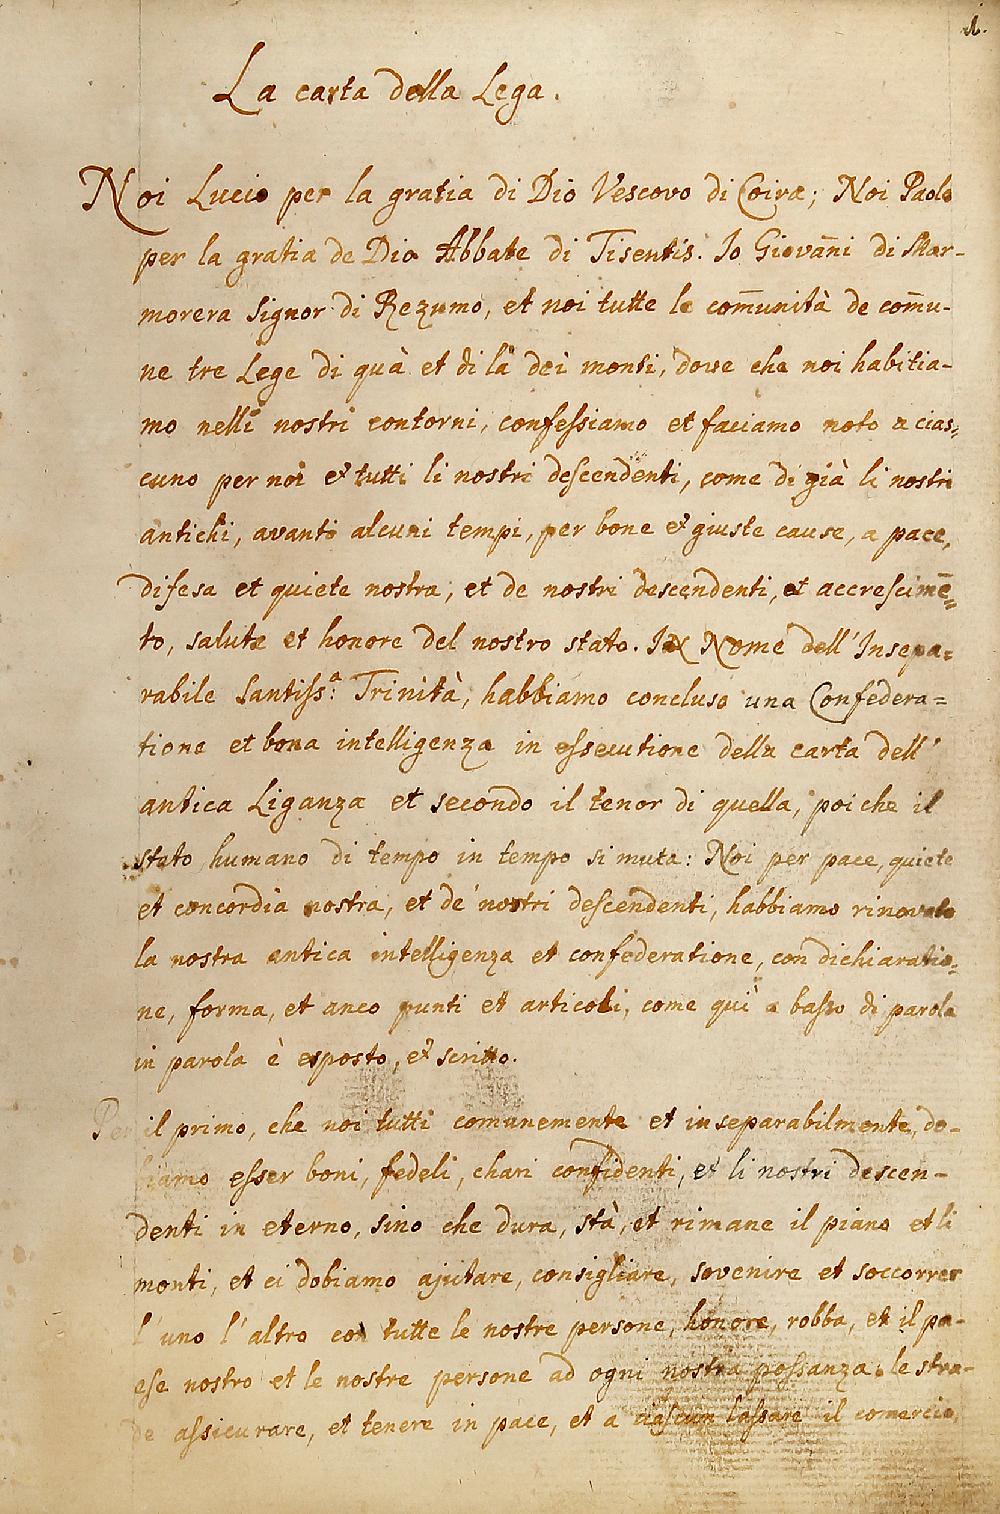 1.
La carta della Lega.
Noi Lucio per la gratia di Dio Vescovo di Coira; Noi Paolo
per la gratia de Dio Abbate di Tisentis. Io Giovan̄i di Mar-
morera Signor di Rezumo, et noi tutte le com̄unità de com̄u-
ne tre Lege di quà et di là dei monti, dove che noi habitia-
mo nelli nostri contorni, confeſsiamo et faciamo noto a cias=
cuno per noi et tutti li nostri deſcendenti, come di già li nostri
antichi, avanti alcuni tempi, per bone et giuste cause, a pace,
difesa et quiete nostra, et de nostri descendenti, et accreſcimē=
to, salute et honore del nostro stato. In Nome dell'Insepa=
rabile Santiſs.ᵃ Trinità, habbiamo concluso una Confedera=
tione et bona intelligenza in eſsecutione della carta dell'
antica Liganza et secondo il tenor di quella, poi che il
stato humano di tempo in tempo si muta: Noi per pace, quiete
et concordia nostra, et de' nostri deſcendenti, habbiamo rinovato
la nostra antica intelligenza et confederatione, con dichiaratio=
ne, forma, et anco punti et articoli, come quì a baſso di parola
in parola è esposto, et scritto.
Per il primo, che noi tutti comunemente et inseparabilmente, do-
biamo eſser boni, fedeli, chari confidenti, et li nostri descen-
denti in eterno, sino che dura, stà, et rimane il piano et li
monti, et ci dobiamo ajutare, consigliare, sovenire et soccorrer
l'uno l'altro con tutte le nostre persone, honore, robba, et il pa-
ese nostro et le nostre persone ad ogni nostra poſsanza, le stra-
de aſsicurare, et tenere in pace, et a ciaſcun laſsare il comercio,